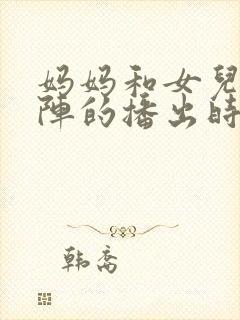 妈妈和女兒
陣的播出時
韩劇